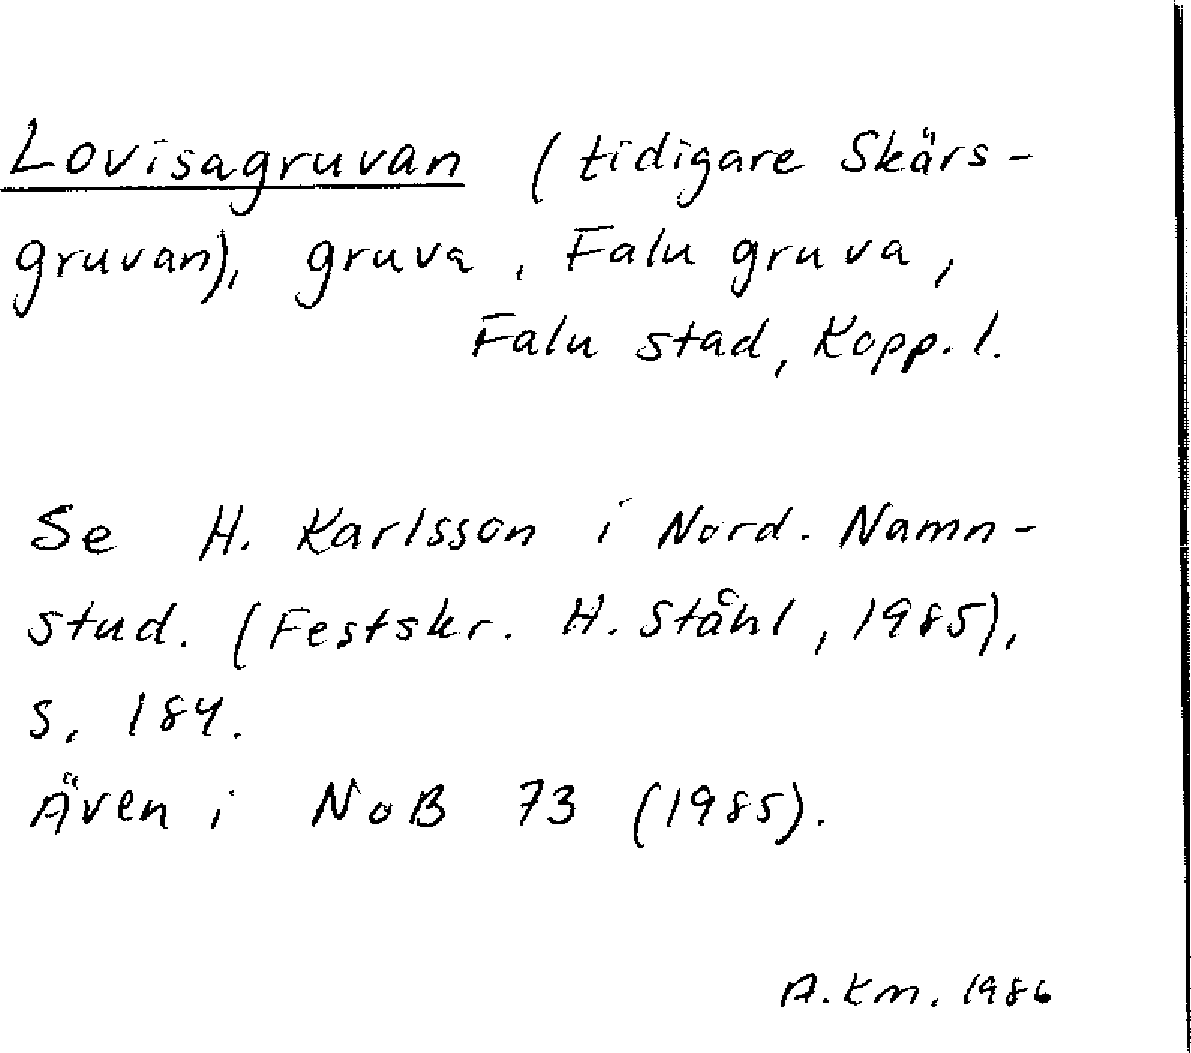 Lovisagruvan (tidigare Skärs-
gruvan), gruva, Falu gruva,
Falu stad, Kopp. l.
Se H. Karlsson i Nord. Namn-
stud. (Festskr. H. Ståhl, 1985),
s. 184.
Även i NoB 73 (1985).
A. Km. 1986